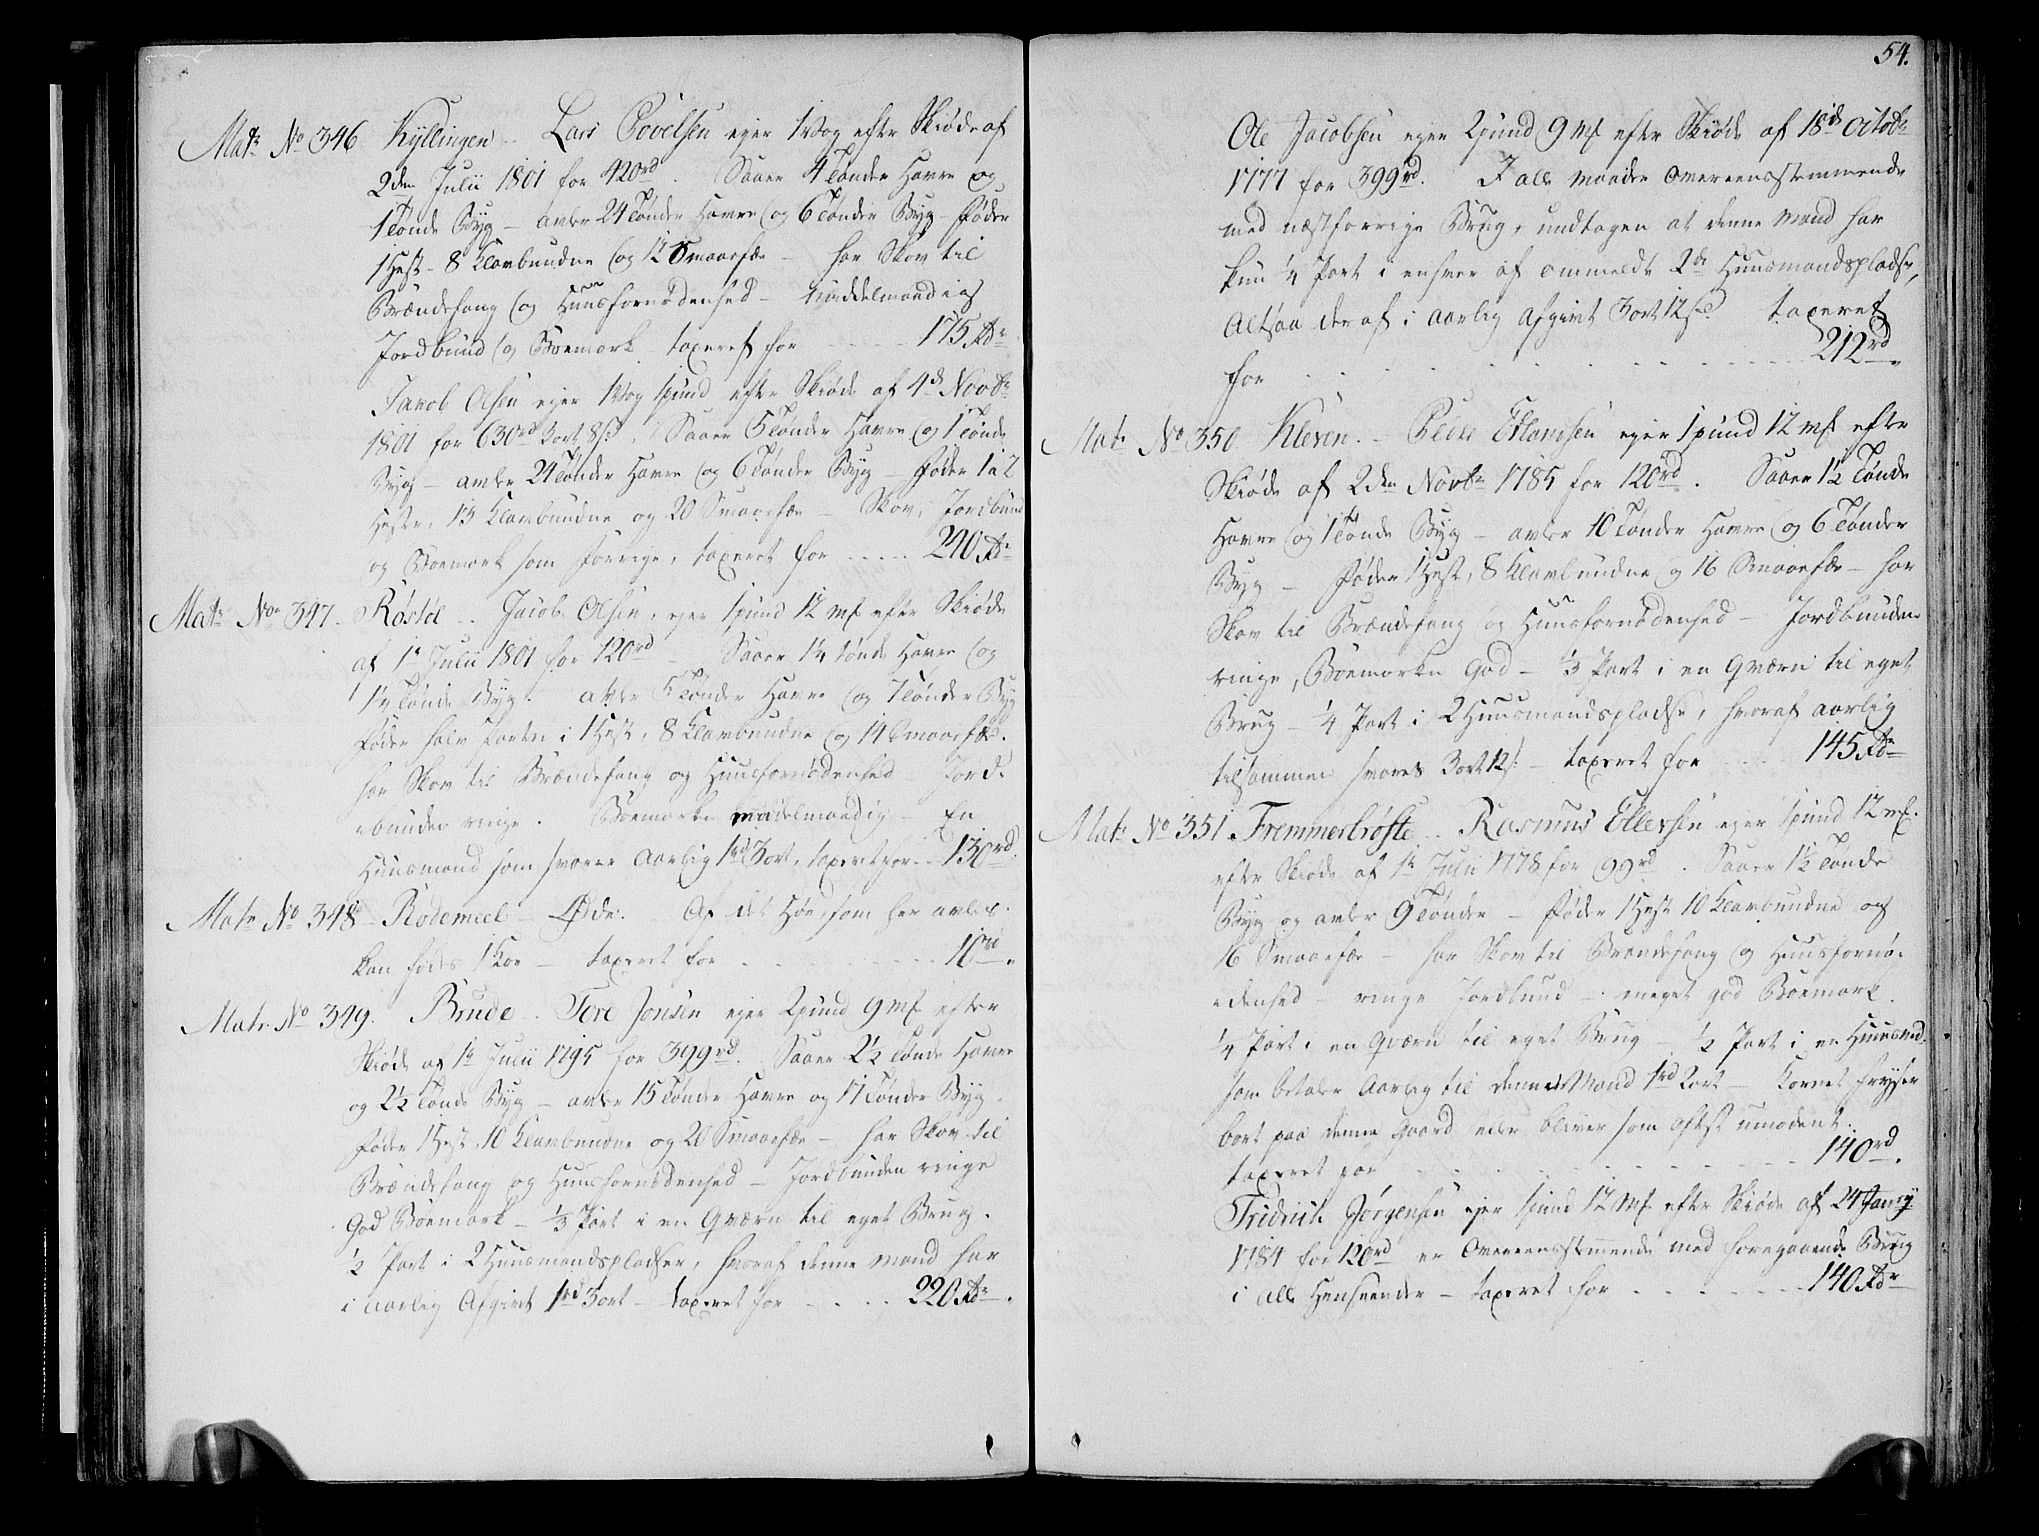 Matr No 346 Kyllingen .. Lars Povelsen ejer 1 Vog efter Skiøde af
2den Julii 1801 for 420rd. Saaer 4 Tønder Havre og
1 Tønde Byg – avler 24 Tønder Havre og 6 Tønder Byg – føder
1 Hest – 8 Klavbundne og 12 Smaaefæ – har Skov til
Brændefang og Huusfornødenhed – middelmaadig
Jordbund og Bøemark taxeret for ..... 175 Rdr
Jacob Olsen ejer 1 Vog 1 pund efter Skiøde af 4de Novbr
1801 for 630rd 3ort 8s. Saaer 5 Tønder Havre og 1 Tønde
Byg – avler 24 Tønder Havre og 6 Tønder Byg – føder 1 a 2
Heste, 13 Klavbundne og 20 Smaaefæ – Skov, Jordbund
og Bøemark som forrige, taxeret for ..... 240 Rdr
Matr No 347. Røstøl .. Jacob Olsen, ejer 1 pund 12 mk efter Skiøde
af 1te Julii 1801 for 120rd – Saaer 1¼ tønde Havre og
1¼ Tønde Byg. avler 5 Tønder Havre og 7 Tønder Byg
føder halv parten i 1 Hest, 8 Klavbundne og 14 Smaaefæ.
har Skov til Brændefang og Huusfornødenhed – Jord-
-bunden ringe. Bøemarken middelmaadig – En
Huusmand som svarer Aarlig 1rd 3ort, taxeret for .. 130rd.
Matr No 348 – Rødemeel – Øde. Af det Høe, som her avles.
kan fødes 1 Koe – taxeret for ..... 10rd.
Matr. No 349. Brude .. Tore Jonsen ejer 2 pund 9 mk efter
Skiøde af 1te Julii 1795 for 399rd. Saaer 2½ Tønde Havre
og 2½ Tønde Byg – avler 15 Tønder Havre og 11 Tønder Byg.
føder 1 Hest, 10 Klavbundne og 20 Smaaefæ – har Skov til
Brændefang og Huusfornødenhed – Jordbunden ringe
God Bøemark – ⅓ Part i en Qværn til eget Brug.
½ Part i 2 Huusmandspladser, hvoraf denne mand har
i aarlig Afgivt 1rd 3ort – taxeret for ..... 220 Rdr.
54.
Ole Jacobsen ejer 2 pund 9 mk efter Skiøde af 18de Octobr
1777 for 399rd. I alle maader overeensstemmende
med næstforrige Brug, undtagen at denne Mand har
kun ¼ Part i enhver af ommeldte 2de Huusmandspladse,
Altsaa der af i aarlig Afgivt 3ort 12s taxeret
for ..... 212rd.
Matr No 350. Kleven .. Peder Erlandsen ejer 1 pund 12 mk efter
Skiøde af 2den Novbr 1785 for 120rd. Saaer 1½ Tønde
Havre og 1 Tønde Byg – avler 10 Tønder Havre og 6 Tønder
Byg – føder 1 Hest, 8 Klavbundne og 16 Smaaefæ – har
Skov til Brændefang og Huusfornødenhed – Jordbunden
ringe, Bøemarken God – ⅓ Part i en Qværn til eget
Brug – ¼ Part i 2 Huusmandspladse, hvoraf aarlig
tilsammen svares 3ort 12s. – taxeret for ..... 145 Rdr
Matr No 351 Fremmerbrøste .. Rasmus Ellevsen ejer 1 pund 12 mk.
efter Skiøde af 1te Julii 1778 for 99rd. Saaer 1½ Tønde
Byg og avler 9 Tønder – føder 1 Hest 10 Klavbundne og
16 Smaaefæ – har Skov til Brændefang og Huusfornø-
-denhed – ringe Jordbund – meget god Bøemark.
¼ Part i en Qværn til eget Brug – ½ Part i en Huusmd.
som betaler Aarlig til denne Mand 1rd 2ort – Kornet fryser
bort paa denne Gaard eller bliver som oftest umodent.
taxeret for ..... 140rd.
Fridrich Jørgensen ejer 1 pund 12 mk efter Skiøde af 24 Janry
1784 for 120rd er Overeensstemmende med foregaaende Brug
i alle Henseender – taxeret for ..... 140 Rdr